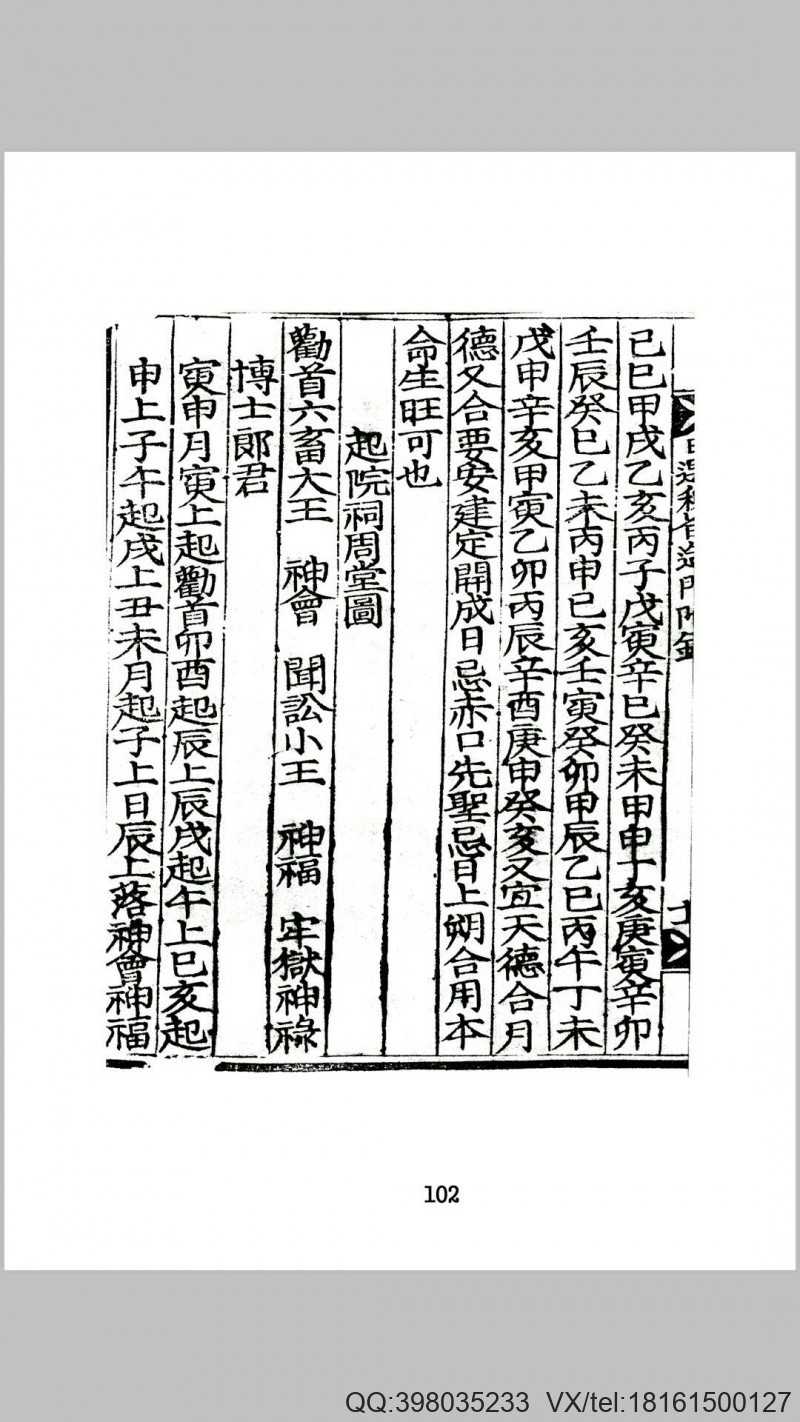 己巳甲戌乙亥丙子戊寅辛巳癸未甲申丁亥庚寅辛卯
壬辰癸巳乙未丙申己亥壬寅癸卯甲辰乙巳丙午丁未
戊申辛亥甲寅乙卯丙辰辛酉庚申癸亥又宜天德合月
德又合要安建定開成日忌赤口先聖忌日上朔合用本
命生旺可也
起院祠周堂圖
勸首六畜大王　神會　聞訟小王　神福　牢獄神祿
博士郎君
寅申月寅上起勸首卯酉起辰上辰戌起午上巳亥起
申上子午起戌上丑未月起子上日辰上落神會神福
102
QQ:398035233 VX/tel:18161500127